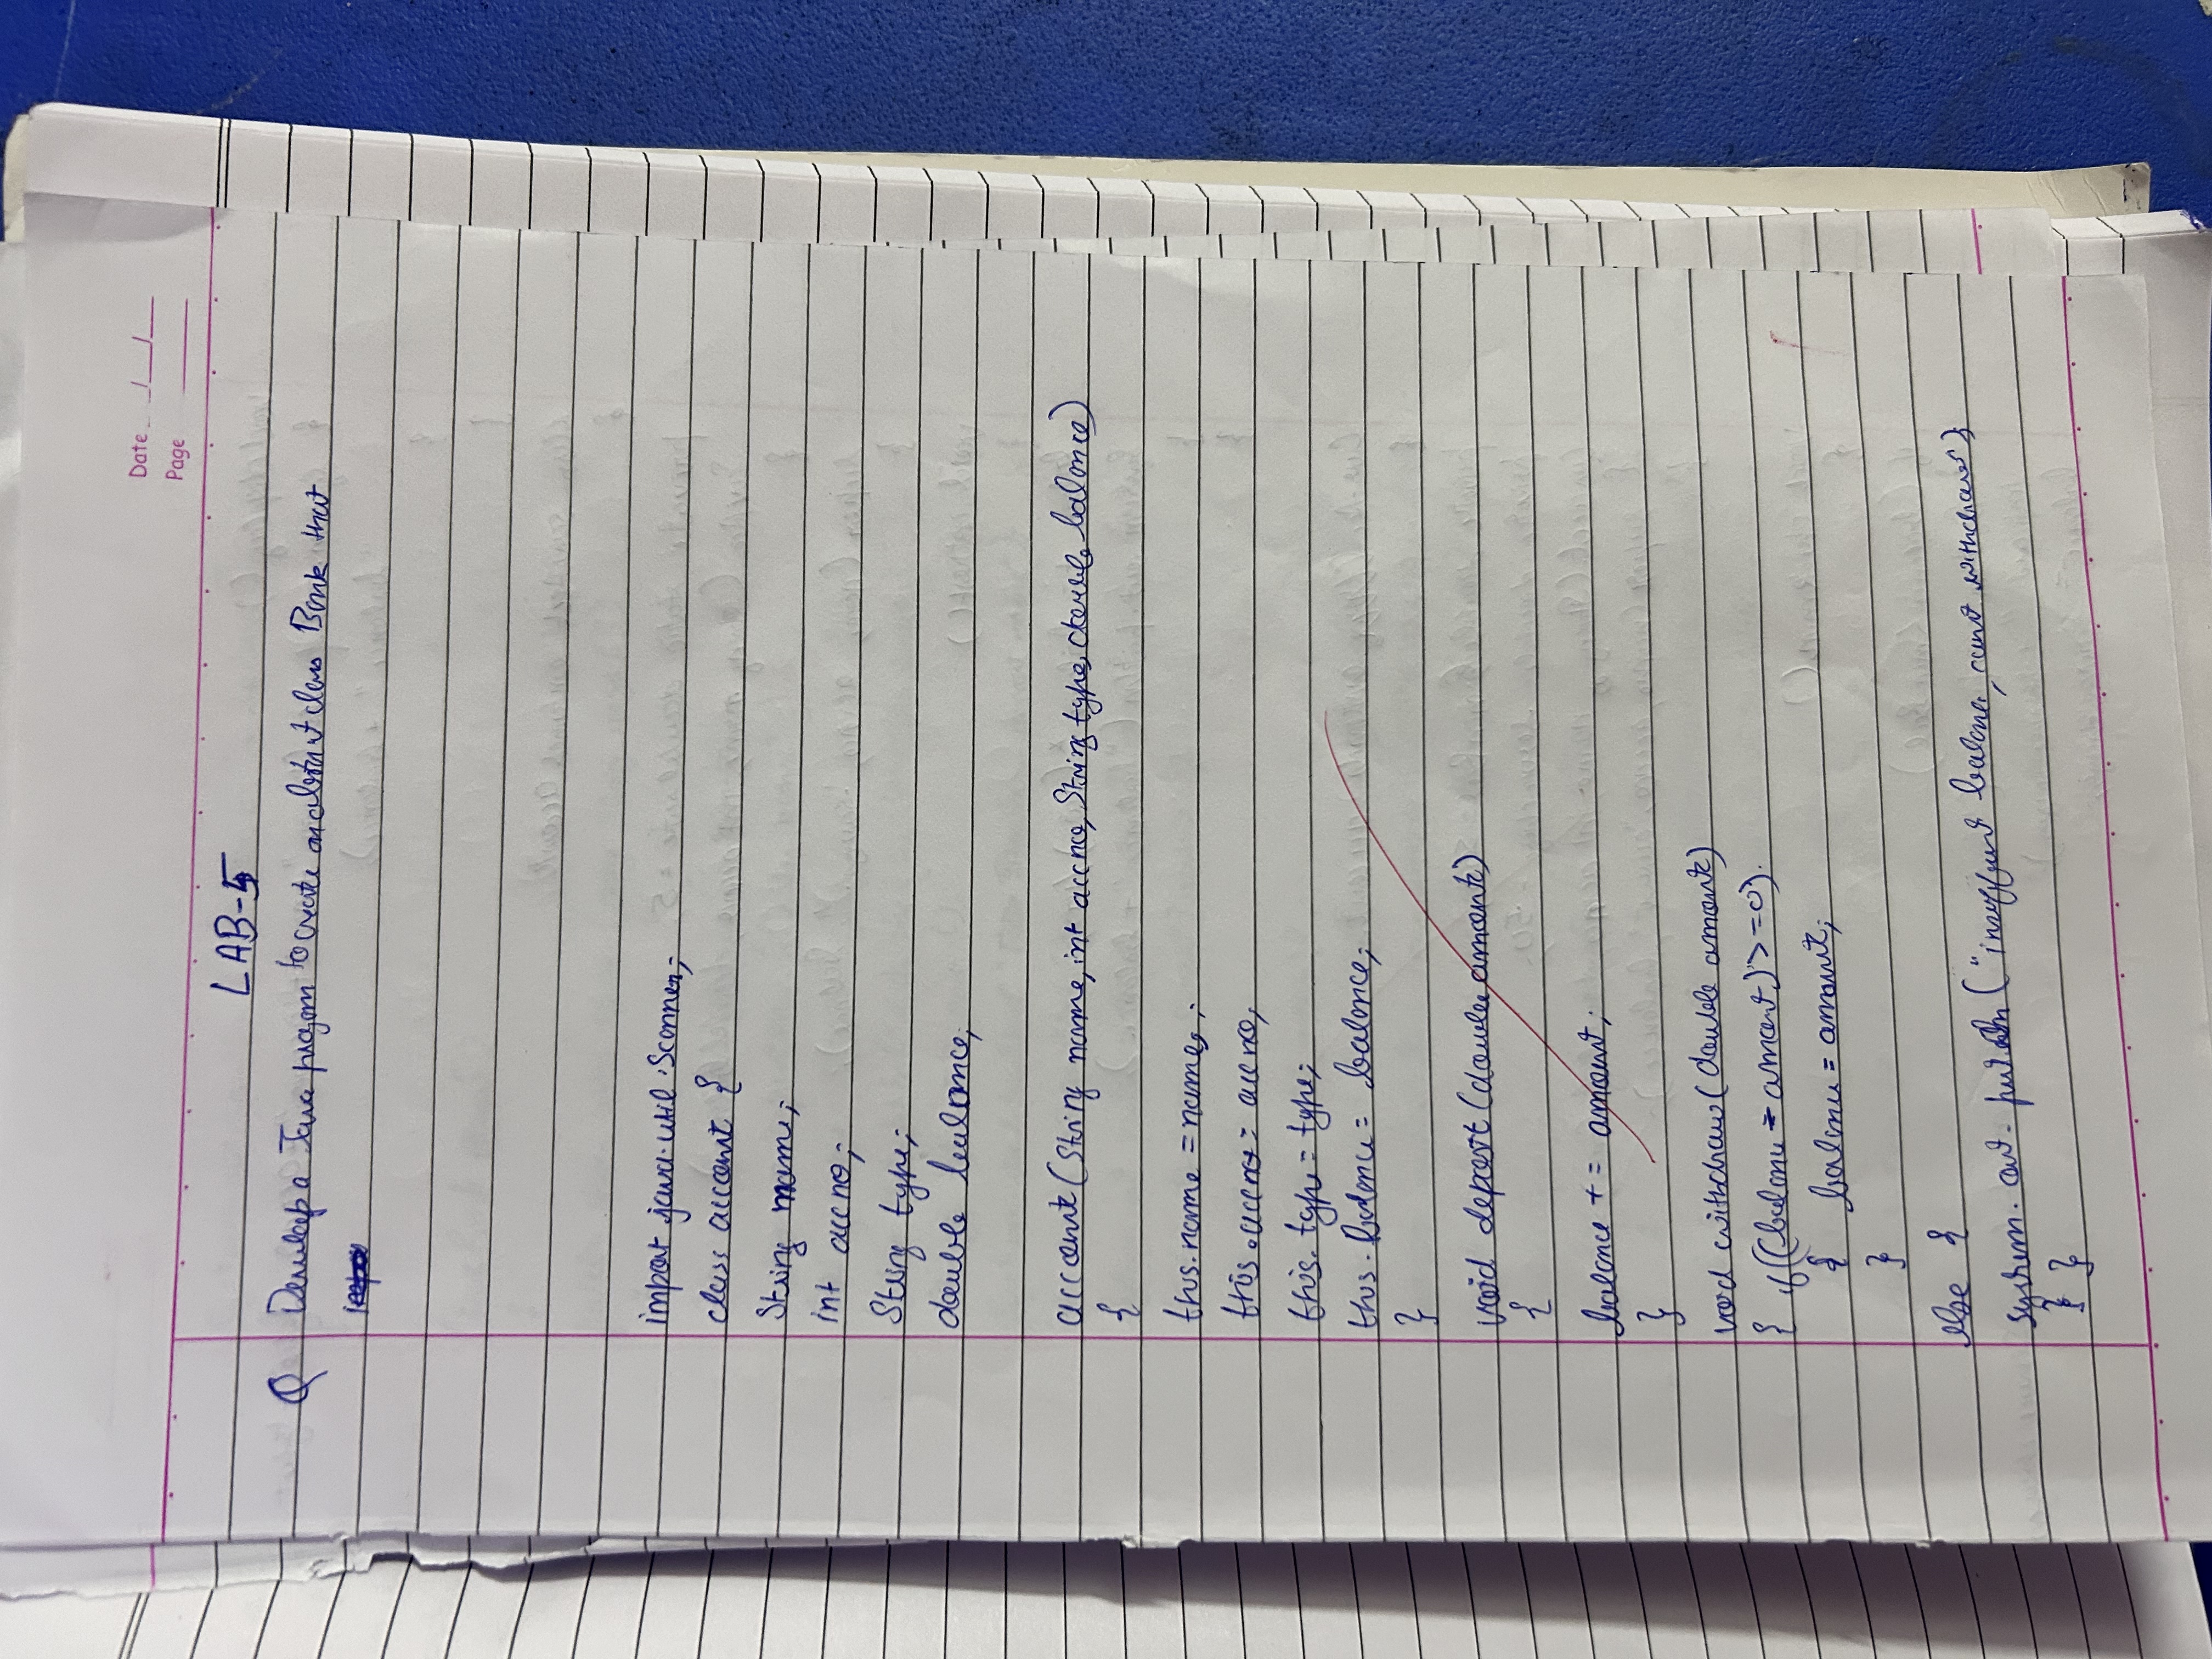 Date __/__/__
Page ____
LAB-5
Q Develop a Java progom to create an abstract class Bank that
import java.util.Scanner;
class account {
String name;
int accno;
String type;
double balance;
account (String name, int accno, String type, double balance)
{
this.name = name;
this.accno = accno;
this.type = type;
this.balance = balance;
}
void deposit (double amount)
{
balance += amount;
}
void withdraw (double amount)
{ if ((balance - amount) >= 0)
{ balance = amount;
}
else {
system.out.println ("insufficient balance, can't withdraw");
} }